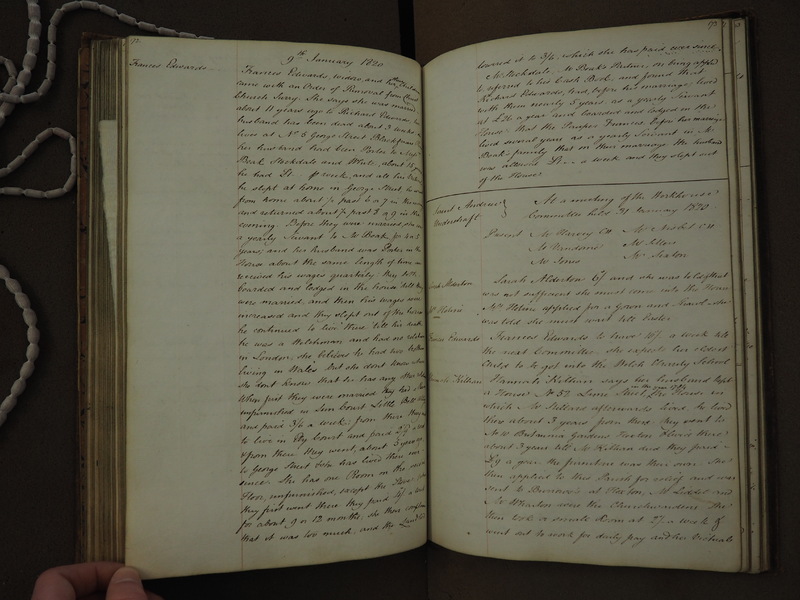 9th January 1820
Frances Edwards
Frances Edwards, widow, and her
came with an Order of Removal from Christ
Church Surry. She says she was married
about 11 years ago to Richard Edwards, her
husband has been dead about 3 weeks
lives at No 5 George Street Blackfriars
her husband had been Porter to Messrs
Boak Stockdale and White, about 15 years
he had week, and all his
he slept at home in George Street he went
from home about 1/2 past 6 or 7 in the morning
and returned about 1/2 past 8 or 9 in the
evening. Before they were married, she was
a yearly Servant to Mr Boak, for 4 or 5
years, and her husband was Porter in the
House about the same length of time and
received his wages quarterly they both
boarded and lodged in the house till they
were married, and then his wages were
increased and they slept out of the house
he continued to live there till his death
he was a Welchman and had no relation
in London, she believes he had two
living in Wales but she don't know where
she don't know that he has any other
When first they were married they had a Room
unfurnished in Sun Court Little Bell
and paid 3/6 a week; from there they went
to live in Ely Court and paid 2/ a week
from there they went, about 5 years
to George Street has lived there ever
since. She has one Room on the
floor, unfurnished, except the
they first went there they paid a week
for about 9 or 12 months, she then complained
that it was too much, and the Landlord
lowered it to 3/6, which she has paid ever since.
Mr Stockdale, Mr Boak's Partner, on being applied
to referred to his Cash Book and found that
Richard Edwards, had, before his marriage, lived
with them nearly 5 years as a yearly Servant
at £26 a year and boarded and lodged in the
House, that the Pauper Frances, before her marriage
lived several years as a yearly Servant in Mr
Boak's family that on their marriage the husband
was allowed a week and they slept out
of the House
Saint Andrew
Undershaft
At a meeting of the Workhouse
Committee held 21 January 1820
Present Mr Harvey CW Mr Nisbet CW
Mr Vandome Mr Sellers
Mr Jones Mr Sexton
Sarah Alderton
Sarah Alderton 6/ and she was told if that
was not sufficient she must come into the House
Mrs Helm applied for a Gown and Shawl she
was told she must wait till Easter
Frances Edwards
Frances Edwards to have 10/ a week till
the next Committee. She expects her eldest
Child to be got into the Welch Charity School
Hannah Killian
Hannah Killian says her husband kept
a House No 52 Lime Street, the House in
which Mr Sellers afterwards lived, he lived
there about 3 years from there they went to
No 10 Britannia Gardens Hoxton & lived there
about 3 years till Mr Killian died they paid
£9 a year the furniture was their own. She
then applied to this Parish for relief and was
sent to Burrows's at Hoxton, Mr Liddel and
Mr Wharton were the Churchwardens She
then took a private Room at 2/ a week &
went out to work for daily pay and her Victuals